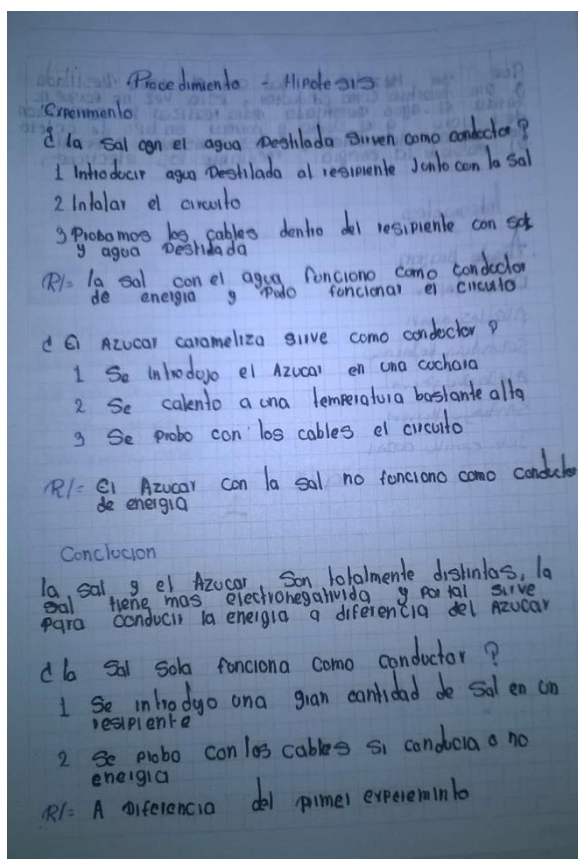 Procedimiento - Hipotesis
Experimento
¿ la sal con el agua Destilada sirven como conductor ?
1 Introducir agua Destilada al resipiente Junto con la sal
2 Intalar el circuito
3 Probamos los cables dentro del resipiente con sal
y agua Destidada
R/= la sal con el agua funciono como conductor
de energia y Pudo funcionar el circuito
¿ El Azucar carameliza sirve como conductor ?
1 Se introdujo el Azucar en una cuchara
2 Se calento a una temperatura bastante alta
3 Se Probo con los cables el circuito
R/= El Azucar con la sal no funciono como conductor
de energia
Conclucion
la sal y el Azucar Son totalmente distintas, la
sal tiene mas electronegativida y por tal sirve
para conducir la energia a diferencia del Azucar
¿ la Sal Sola funciona como conductor ?
1 Se introdyo una gran cantidad de Sal en un
resipiente
2 Se probo con los cables si conducia o no
energia
R/= A Diferencia del pimer expereminto